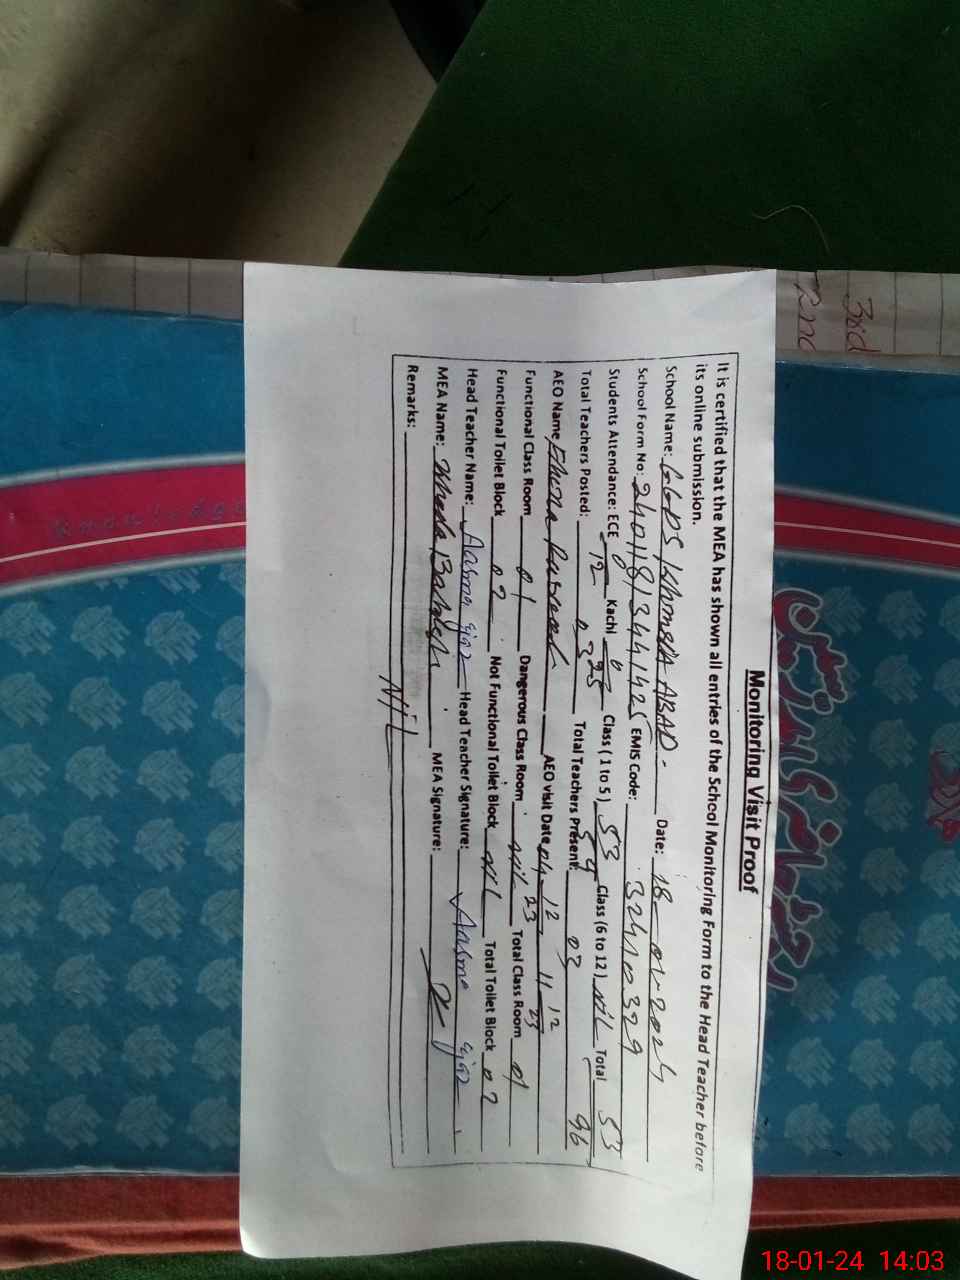 Monitoring Visit Proof
It is certified that the MEA has shown all entries of the School Monitoring Form to the Head Teacher before
its online submission.
School Name: GGPS ABAD. Date: 18-01-2024
School Form No: EMIS Code: 32410329
Students Attendance: ECE 0 12 Kachi 0 25 Class (1 to 5) 53 59 Class (6 to 12) NIL Total 53 96
Total Teachers Posted: 03 Total Teachers Present: 03
AEO Name AEO Visit Date 04-12-23 11-12-23
Functional Class Room 01 Dangerous Class Room NIL Total Class Room 01
Functional Toilet Block 02 Not Functional Toilet Block NIL Total Toilet Block 02
Head Teacher Name: Aasma ejaz Head Teacher Signature: Aasma ejaz
MEA Name: MEA Signature:
Remarks: NIL
3rd
2nd
18-01-24 14:03